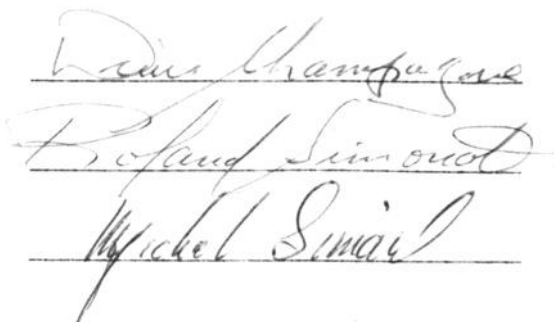 Champagne
Roland Simonot
Michel Simard